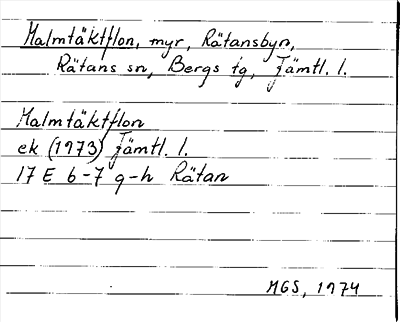 Malmtäktflon, myr, Rätansbyn,
Rätans sn, Bergs tg, Jämtl. l.
Malmtäktflon
ek (1973) Jämtl. l.
17 E 6-7 g-h Rätan
MGS, 1974